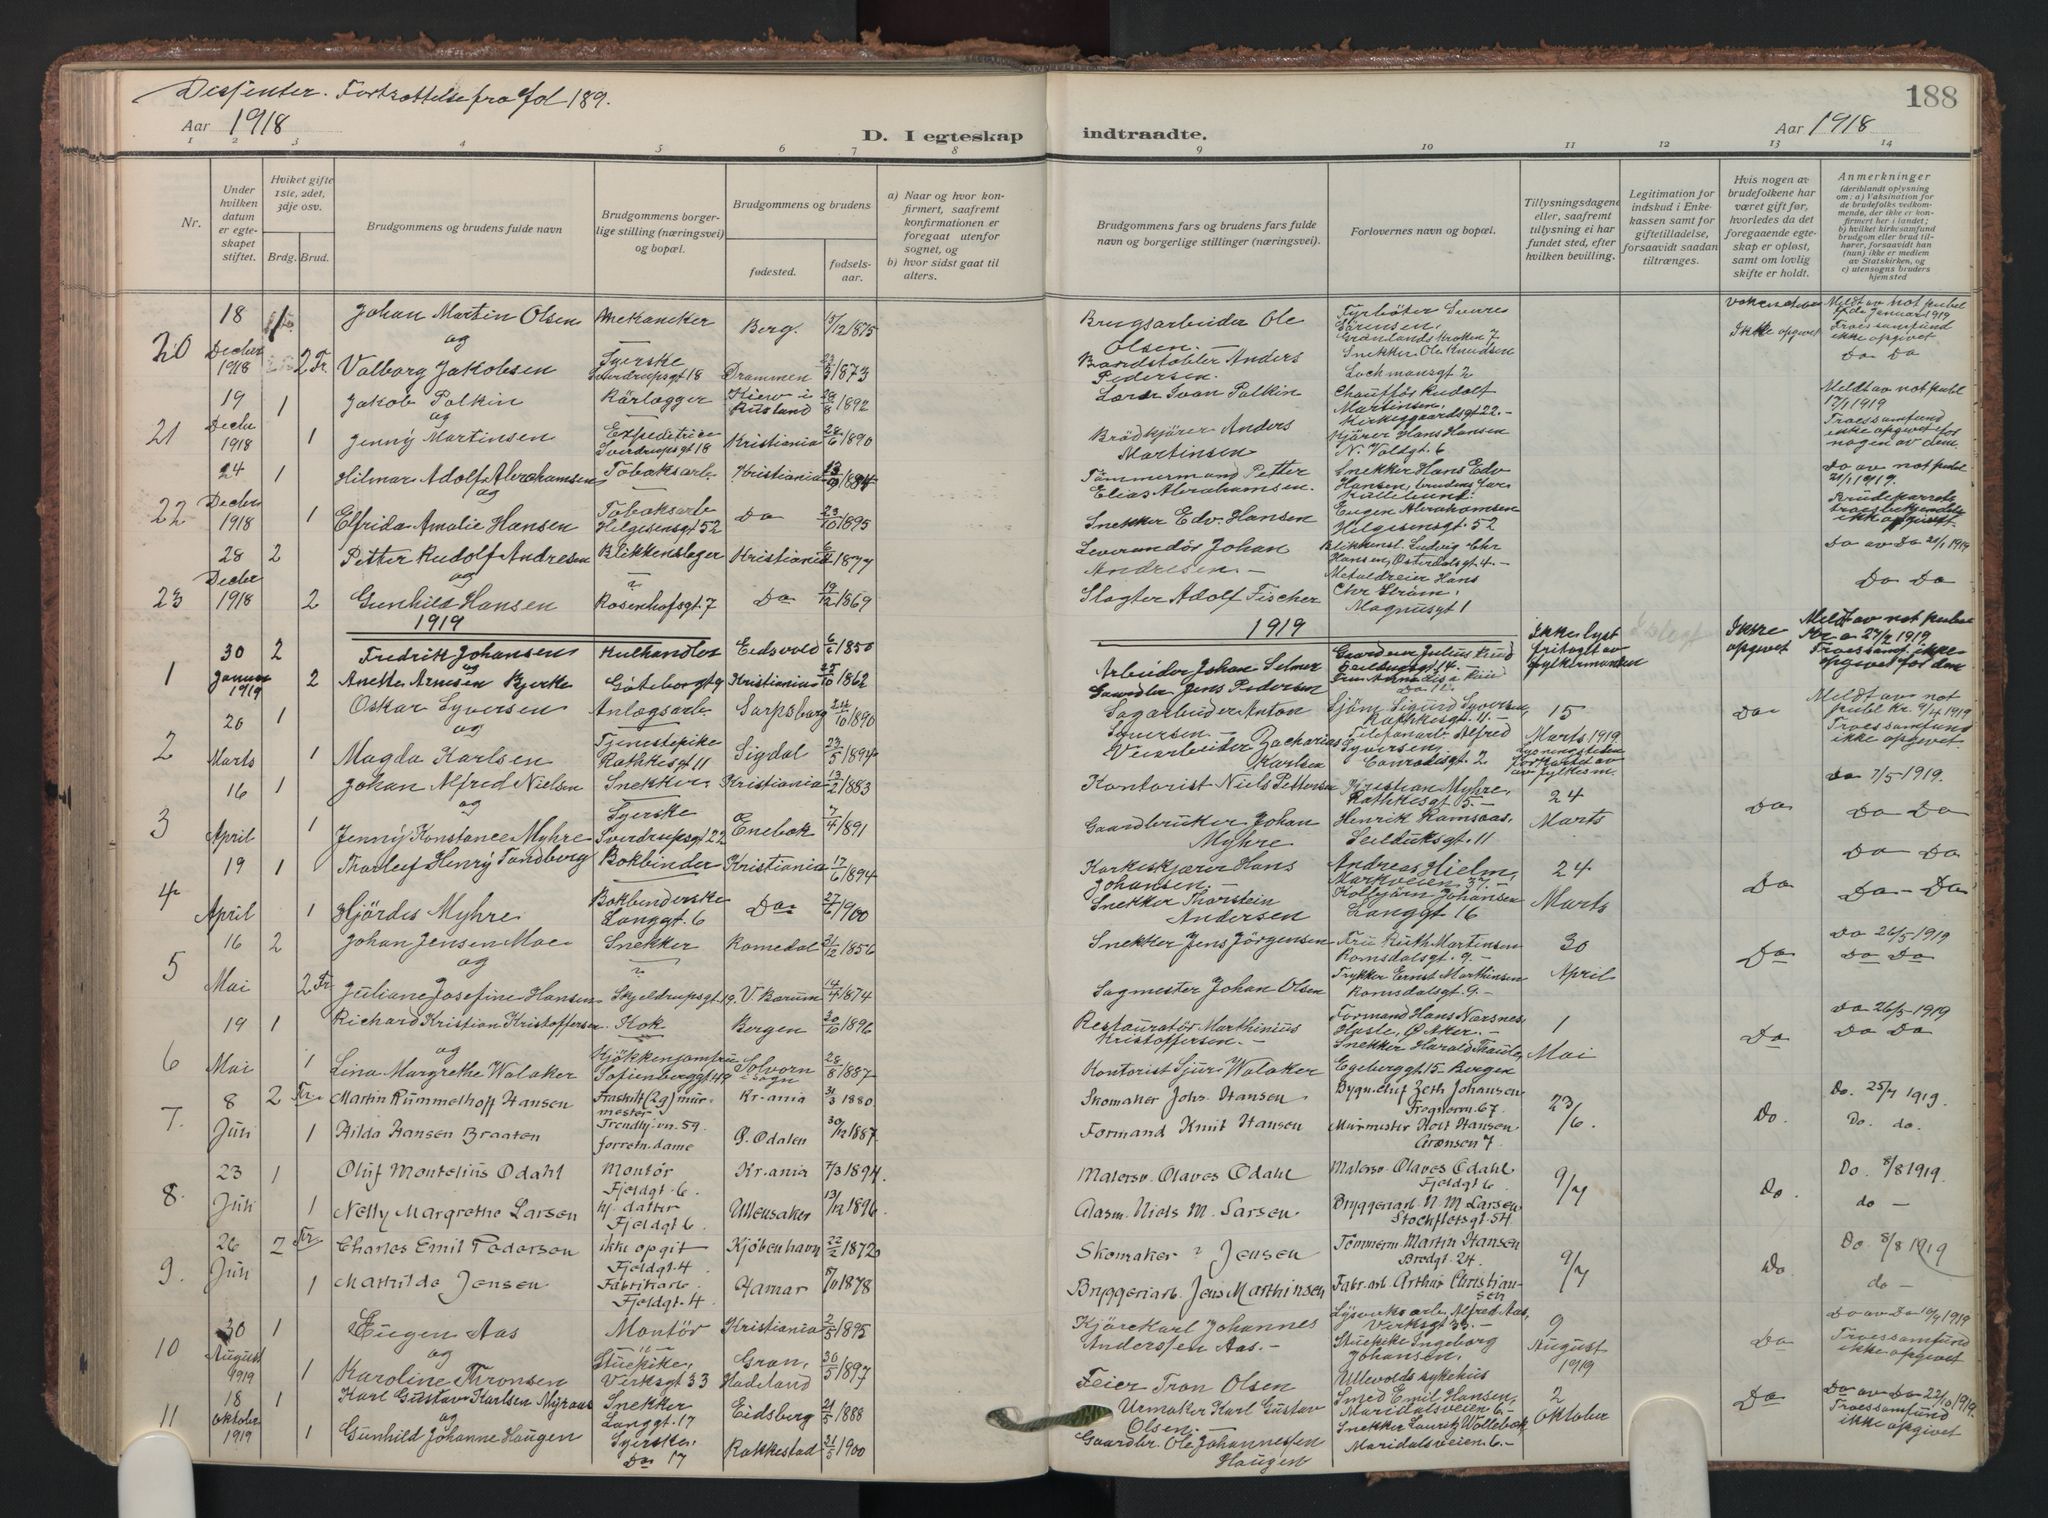 Dissenter. Fortsættelse fra fol 189.
188
Aar 1918
D. I egteskap
indtraadte.
Aar 1918
1 2 3 4 5 6 7 8 9 10 11 12 13 14
Nr.
Under hvilken datum er egteskapet stiftet.
Hviket gifte 1ste, 2det, 3dje osv.
Brdg. Brud.
Brudgommens og brudens fulde navn
Brudgommens borgerlige stilling (næringsvei) og bopæl.
Brudgommens og brudens
fødested.
fødselsaar.
a) Naar og hvor konfirmert, saafremt konfirmationen er foregaat utenfor sognet, og
b) hvor sidst gaat til alters.
Brudgommens fars og brudens fars fulde navn og borgerlige stillinger (næringsvei).
Forlovernes navn og bopæl.
Tillysningsdagene eller, saafremt tillysning ei har fundet sted, efter hvilken bevilling.
Legitimation for indskud i Enkekassen samt for giftetilladelse, forsaavidt saadan tiltrænges.
Hvis nogen av brudefolkene har været gift før, hvorledes da det foregaaende egteskap er opløst, samt om lovlig skifte er holdt.
Anmerkninger (deriblandt oplysning om: a) Vaksination for de brudefolks vedkommende, der ikke er konfirmert her i landet; b) hvilket kirkesamfund brudgom eller brud tilhører, forsaavidt han (hun) ikke er medlem av Statskirken, og c) utensogns bruders hjemsted
20 18 Decbr 1918 1 Johan Martin Olsen Mekaniker Berg. 15/12 1875 Brugsarbeider Ole Olsen. Fyrbøter Sverre Sørensen, Grønlands Kroken 7 Ikke opgivet Meldt av not publ januar 1919 Troessamfund ikke opgivet
og
2 Fr. Valborg Jakobsen Syerske Sverdrupsgt 18 Drammen 23/3 1873 Anders Pedersen. Snekker Ole Knudsen Lochmansgt 2 Do Do
21 19 Decbr 1918 1 Jakob Palkin Rørlægger Kiew i Rusland 28/8 1892 Lærer Ivan Palkin Chauffør Rudolf Martinsen, Kirkegaardsgt 22.- Meldt av not publ 17/1 1919
og
1 Jenny Martinsen Expeditrice Sverdrupsgt 18 Kristiania 28/6 1890 Brødkjører Anders Martinsen Kjører Hans Hansen N. Voldgt. 6 Troessamfund ikke opgivet for nogen av dem.
22 24 Decbr 1918 1 Hilmar Adolf Abrahamsen Tobaksarb. Kristiania 1894 Tømmermand Petter Elias Abrahamsen. Snekker Hans Edv Hansen, brudens far Do av not publ 21/1 1919.
og
1 Elfrida Amalie Hansen Tobaksarb Helgesensgt 52 Do 23/10 1895 Snekker Edv. Hansen Eugen Abrahamsen Helgesensgt. 52 ikke opgivet
23 28 Decbr 1918 2 Petter Rudolf Andresen Blikkenslager Kristiania 1877 Leverandør Johan Andresen.- Blikkensl. Ludvig Chr Hansen, Østerdalsgt 4.- Do av Do 21/1 1919
og
2 Gunhild Hansen Rosenhofsgt. 7 Do 19/12 1869 Slagter Adolf Fischer Hans Chr Strøm, Magnusgt 1 Do Do
1919
1919
1 30 Januar 1919 2 Fredrik Johansen Kulhandler Eidsvold 6/6 1850 Arbeider Johan Selmer Gaardeier Julius Ruud Ikke lyst fritagt av fylkesmanden Ikke opgivet Meldt av not publ Kr.a 27/2 1919 Troessamf. ikke opgivet for dem
og
2 Anette Arnesen Bjerke Gøteborggt 9 Kristiania 25/10 1862 Gaardbr Jens Pedersen
2 20 Marts 1 Oskar Syversen Anlægsarb. Sarpsborg 24/10 1890 Sagarbeider Anton Syversen.- Sjøm. Sigurd Syversen, Rathkesgt. 11.- 15 Marts 1919 Do Meldt av not publ Kr. 9/4 1919 Troessamfund ikke opgivet.
og
1 Magda Karlsen Tjenestepike Rathkesgt 11 Sigdal 23/5 1894 Veiarbeider Zacharias Karlsen Telefonarb. Alfred Syversen, Conradisgt. 2
3 16 April 1 Johan Alfred Nielsen Snekker Kristiania 13/2 1883 Kontorist Niels Pettersen Kristian Myhre, Rathkesgt 5.- 24 Marts Do Do 7/5 1919.
og
1 Jenny Konstance Myhre Syerske Sverdrupsgt 22 Enebak 7/4 1891 Gaardbruker Johan Myhre Henrik Ramsaas, Seilduksgt. 11 Do Do
4 19 April 1 Thorleif Henry Tandberg Bokbinder Kristiania 17/6 1894 Hans Johansen.- Andreas Hielm, Markveien 37.- 24 Marts Do Do Do
1 Hjørdis Myhre Bokbinderske Langgt. 6 Do 27/6 1900 Snekker Thorstein Andersen Kolbjørn Johansen Langgt 16 Do - Do
5 16 Mai 2 Johan Jensen Moe Snekker Romedal 31/12 1856 Snekker Jens Jørgensen Fru Ruth Martinsen Romsdalsgt. 9.- 30 April Do Do 26/5 1919
og
2 Fr Juliane Josefine Hansen Skjeldrupsgt 19. V. Bærum 14/4 1874 Sagmester Johan Olsen Trykker Ernst Marthinsen Romsdalsgt 9.- Do Do
6 19 Mai 1 Richard Kristian Kristoffersen Kok Bergen 30/10 1896 Restauratør Marthinius Kristoffersen.- Formand Hans Næsnes Hasle, Ø. Aker.- 1 Mai Do Do 26/5 1919 Do Do
og
1 Lina Margrethe Walaker Kjøkkenjomfru Sofienberggt 49 Solvorn i Sogn 28/8 1887 Kontorist Sjur Walaker Snekker Harald Egeberggt 15 Bergen
7. 8 Juli 2 Fr. Martin Rummelhoff Hansen Fraskilt (2g) murmester. Trondhj.vn. 59. Kr.ania 3/3 1880 Skomaker Johs Hansen. Bygn.chef Zeth Johansen Frognerv. 67. 23/6. Do. Do. 25/7 1919.
1 Hilda Hansen Braaten forretn. dame Ø. Odalen 30/12 1887 Formand Knut Hansen Murmester Rolf Hansen Grænsen 7 Do. do.
8. 23 Juli 1 Oluf Montelius Ødahl Montør Fjeldgt. 6. Kr.ania 7/3 1894. Malersv. Olaves Ødahl Malersv. Olaves Ødahl Fjeldgt 6 9/7 Do. Do. 8/8 1919.
1 Nelly Margrethe Larsen hj. datter Fjeldgt 6. Ullensaker 13/12 1896 Niels M. Larsen. Bryggeriarb. N. M. Larsen Stockfletsgt. 54 do -
9. 26 Juli 2 Fr Charles Emil Pedersen ikke opgit Fjeldgt. 4 Kjøbenhavn 22/2 1872 Skomaker ? Jensen Tømmerm Martin Hansen Bredgt. 24. 9/7 Do Do. 8/8 1919
1 Mathilde Jensen Fabrikarb Fjeldgt. 4 Hamar 1878 Bryggeriarb. Jens Marthinsen Fabr.arb Arthur Christiansen do -
10 30 August 1919 1 Eugen Aas Montør Kristiania 2/5 1895 Kjørekarl Johannes Anderssen Aas.- Lysverksarb. Alfred Aas, Verksgt 33.- 9 August 1919 Do Do av Do 1919 Troessamfund ikke opgivet
og
1 Karoline Thronsen Stuepike, Verksgt 33 Gran, Hadeland 30/5 1897 Feier Tron Olsen Stuepike Ingeborg Johansen, Ullevolds sykehus
11 18 Oktober 1919 1 Karl Gustav Karlsen Myraas Snekker Langgt. 17 Eidsberg 21/5 1888 Urmaker Karl Gustav Olsen. Smed Emil Hansen, Maridalsveien 6.- 2 Oktober Do Do av Do 22/10 1919. Troessamfund ikke opgivet
og
1 Gunhild Johanne Haugen Syerske, Do 17 Rakkestad 31/5 1900 Gaardbr. Ole Johannessen Haugen Snekker Lauritz Wollebæk, Maridalsveien 6.-